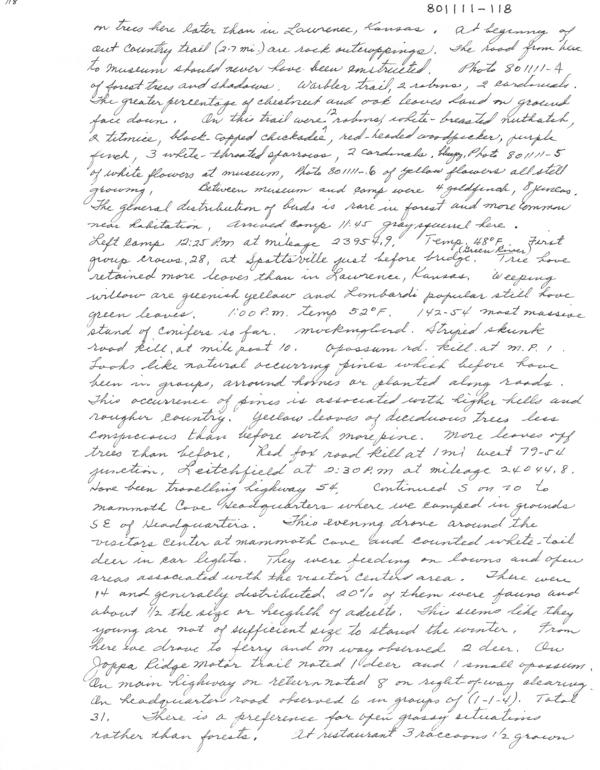 118
801111-118
on trees here later than in Lawrence, Kansas. At beginning of
out country trail (2.7 mi.) are rock outcroppings. The road from here
to museum should never have been constructed. Photo 801111-4
of forest trees and shadows. Warbler trail, 2 robins, 2 cardinals.
The greater percentage of chestnut and oak leaves land on ground
face down. On this trail were 12 robins, white-breasted nuthatch,
2 titmice, black-capped chickadee, red-headed woodpecker, purple
finch, 3 white-throated sparrows, 2 cardinals. Photo 801111-5
of white flowers at museum, Photo 801111-6 of yellow flowers all still
growing. Between museum and camp were 4 goldfinch, 8 juncos.
The general distribution of buds is rare in forest and more common
near habitation. Arrived camp 11:45 gray squirrel here.
Left camp 12:25 P.M. at mileage 23954.9. Temp. 48°F. First
group crows, 28, at Spottsville just before bridge. (Green River) Tree have
retained more leaves than in Lawrence, Kansas. Weeping
willow are greenish yellow and Lombardi popular still have
green leaves. 1:00 P.m. temp 52°F. 142-54 most massive
stand of conifers so far. mockingbird. Striped skunk
road kill, at mile post 10. Opossum rd. kill at m.P. 1.
Looks like natural occurring pines which before have
been in groups, arround homes or planted along roads.
This occurrence of pines is associated with higher hills and
rougher country. Yellow leaves of deciduous trees less
conspicious than before with more pine. More leaves off
trees than before. Red fox road kill at 1 mi west 79-54
junction. Leitchfield at 2:30 P.M at mileage 24044.8.
Have been travelling highway 54. Continued S on 70 to
mammoth Cave Headquarters where we camped in grounds
SE of Headquarters. This evening drove around the
visitors center at mammoth cave and counted white-tail
deer in car lights. They were feeding on lawns and open
areas associated with the visitor centers area. There were
14 and generally distributed. 20% of them were fawns and
about 1/2 the size or heighth of adults. This seems like they
young are not of sufficient size to stand the winter. From
here we drove to ferry and on way observed 2 deer. On
Joppa Ridge Motor trail noted 1 deer and 1 small opossum.
On main highway on return noted 8 on right-of-way clearing.
On headquarters road observed 6 in groups of (1-1-4). Total
31. There is a preference for open grassy situations
rather than forests. At restaurant 3 raccoons 1/2 grown